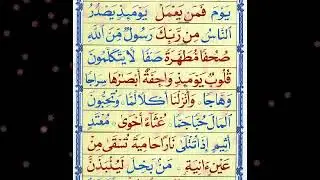 يَوْمَ فَمَنْ يَعْمَلْ يَوْمَئِذٍ يَصْدُرُ
النَّاسُ مِنْ رَبِّكَ رَسُولٌ مِنَ اللهِ
صُحُفًا مُطَهَّرَةً صَفًّا لَا يَتَكَلَّمُونَ
قُلُوبٌ يَوْمَئِذٍ وَاجِفَةٌ أَبْصَارُهَا سِرَاجًا
وَهَّاجًا وَأَنْزَلْنَا أَكْلًا لَمًّا وَتُحِبُّونَ
الْمَالَ حُبًّا جَمًّا غُثَاءً أَحْوَى مُعْتَدٍ
أَثِيمٍ إِذَا تُتْلَى نَارًا حَامِيَةً تُسْقَى مِنْ
عَيْنٍ آنِيَةٍ مَنْ بَخِلَ لَيُنْبَذَنَّ